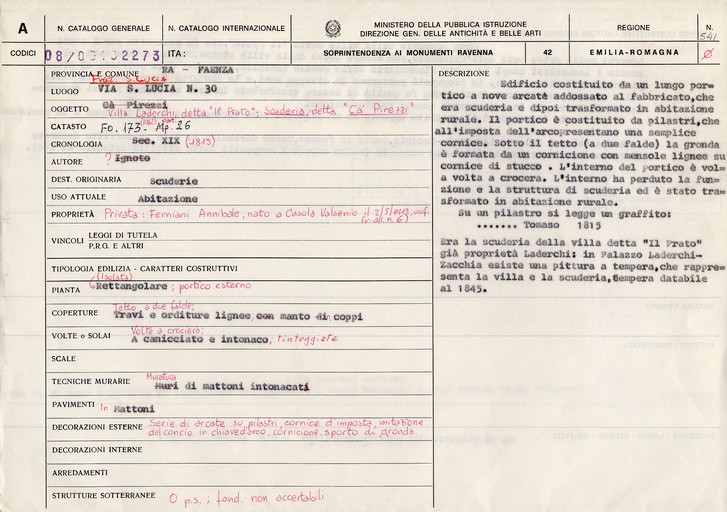 A
N. CATALOGO GENERALE
N. CATALOGO INTERNAZIONALE
MINISTERO DELLA PUBBLICA ISTRUZIONE
DIREZIONE GEN. DELLE ANTICHITÀ E BELLE ARTI
REGIONE
N.
541
CODICI
ITA:
SOPRINTENDENZA AI MONUMENTI RAVENNA
42
EMILIA-ROMAGNA
PROVINCIA E COMUNE RA - FAENZA
S. LUCIA
LUOGO VIA S. LUCIA N. 30
OGGETTO Cà Pirezzi
Villa Laderchi, detta "Il Prato"; Scuderia, detta "Ca' Pirezzi"
CATASTO Fo. 173 - Mp. 26
CRONOLOGIA Sec. XIX (1815)
AUTORE ? Ignoto
DEST. ORIGINARIA Scuderie
USO ATTUALE Abitazione
PROPRIETÀ Privata: Ferniani Annibale, nato a Casola Valsenio il
VINCOLI
LEGGI DI TUTELA
P.R.G. E ALTRI
TIPOLOGIA EDILIZIA - CARATTERI COSTRUTTIVI
(Isolata)
PIANTA Rettangolare; portico esterno
Tetto a due falde;
COPERTURE Travi e orditure lignee, con manto di coppi
Volte a crociera;
VOLTE o SOLAI A canicciato e intonaco; tinteggiate
SCALE
Muratura
TECNICHE MURARIE Muri di mattoni intonacati
PAVIMENTI In Mattoni
DECORAZIONI ESTERNE Serie di arcate su pilastri, cornice d'imposta, imitazione
del concio in chiave d'arco, cornicione, sporto di gronda.
DECORAZIONI INTERNE
ARREDAMENTI
STRUTTURE SOTTERRANEE 0 p.s.; fond. non accertabili
DESCRIZIONE
Edificio costituito da un lungo por-
tico a nove arcate addossato al fabbricato, che
era scuderia e dipoi trasformato in abitazione
rurale. Il portico è costituito da pilastri, che
all'imposta dell'arco presentano una semplice
cornice. Sotto il tetto (a due falde) la gronda
è formata da un cornicione con mensole lignee su
cornice di stucco . L'interno del portico è vol-
a volta a crocera. L'interno ha perduto la fun-
zione e la struttura di scuderia ed è stato tra-
sformato in abitazione rurale.
Su un pilastro si legge un graffito:
....... Tomaso 1815
Era la scuderia della villa detta "Il Prato"
già proprietà Laderchi: in Palazzo Laderchi-
Zacchia esiste una pittura a tempera, che rappre-
senta la villa e la scuderia, tempera databile
al 1845.